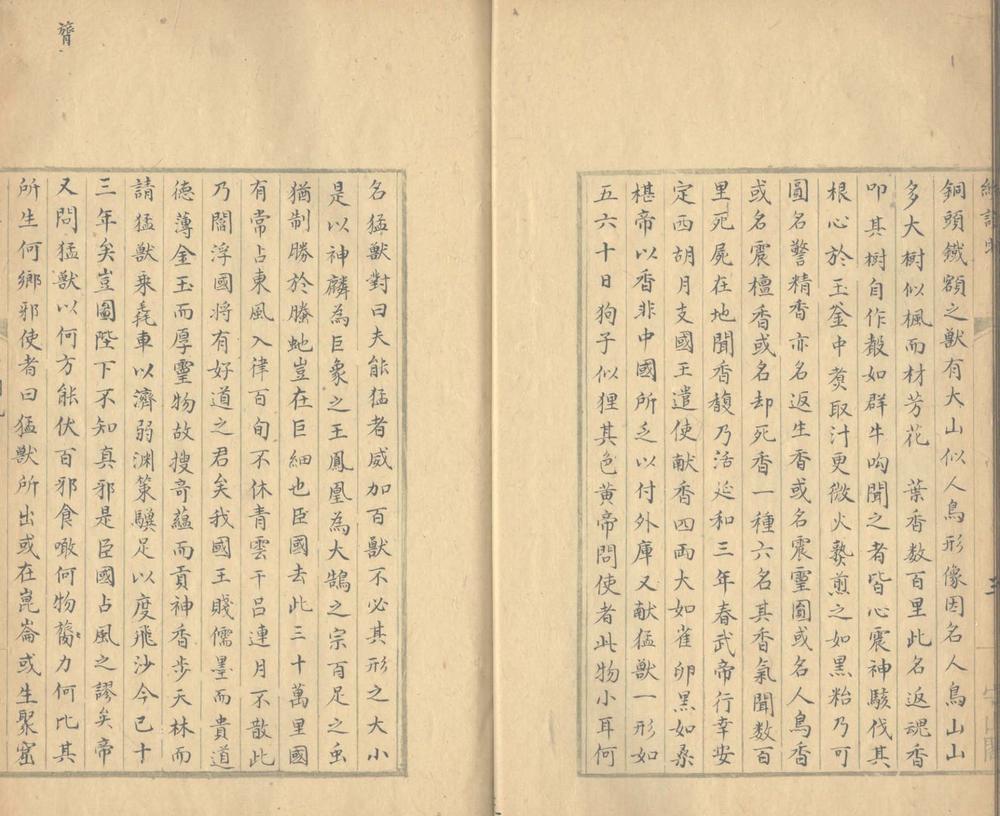 銅頭鐵額之獸有大山似人鳥形像因名人鳥山山
多大樹似楓而材芳花 葉香数百里此名返魂香
叩其樹自作殸如群牛呴聞之者皆心震神駭伐其
根心於玉釜中煑取汁更微火𤎅煎之如黒粘乃可
圓名警精香亦名返生香或名震𩆜圓或名人鳥香
或名震檀香或名却死香一種六名其香氣聞数百
里死屍在地聞香馥乃活延和三年春武帝行幸安
定西胡月支國王遣使献香四兩大如雀卵黒如桑
椹帝以香非中國所乏以付外庫又献猛獸一形如
五六十日狗子似狸其色黄帝問使者此物小耳何
膂
名猛獸對曰夫能猛者威加百獸不必其形之大小
是以神麟為巨象之王鳳凰為大鵠之宗百足之虫
猶制勝於騰虵豈在巨細也臣國去此三十萬里國
有常占東風入律百旬不休青雲干吕連月不散此
乃閻浮國将有好道之君矣我國王賤儒墨而貴道
德薄金玉而厚𩆜物故搜奇蘊而貢神香步天林而
請猛獸乘毳車以濟弱渊策驥足以度飛沙今已十
三年矣豈圖陛下不知真邪是臣國占風之謬矣帝
又問猛獸以何方能伏百邪食噉何物力何比其
所生何鄉邪使者曰猛獸所出或在崑崙或生聚窟